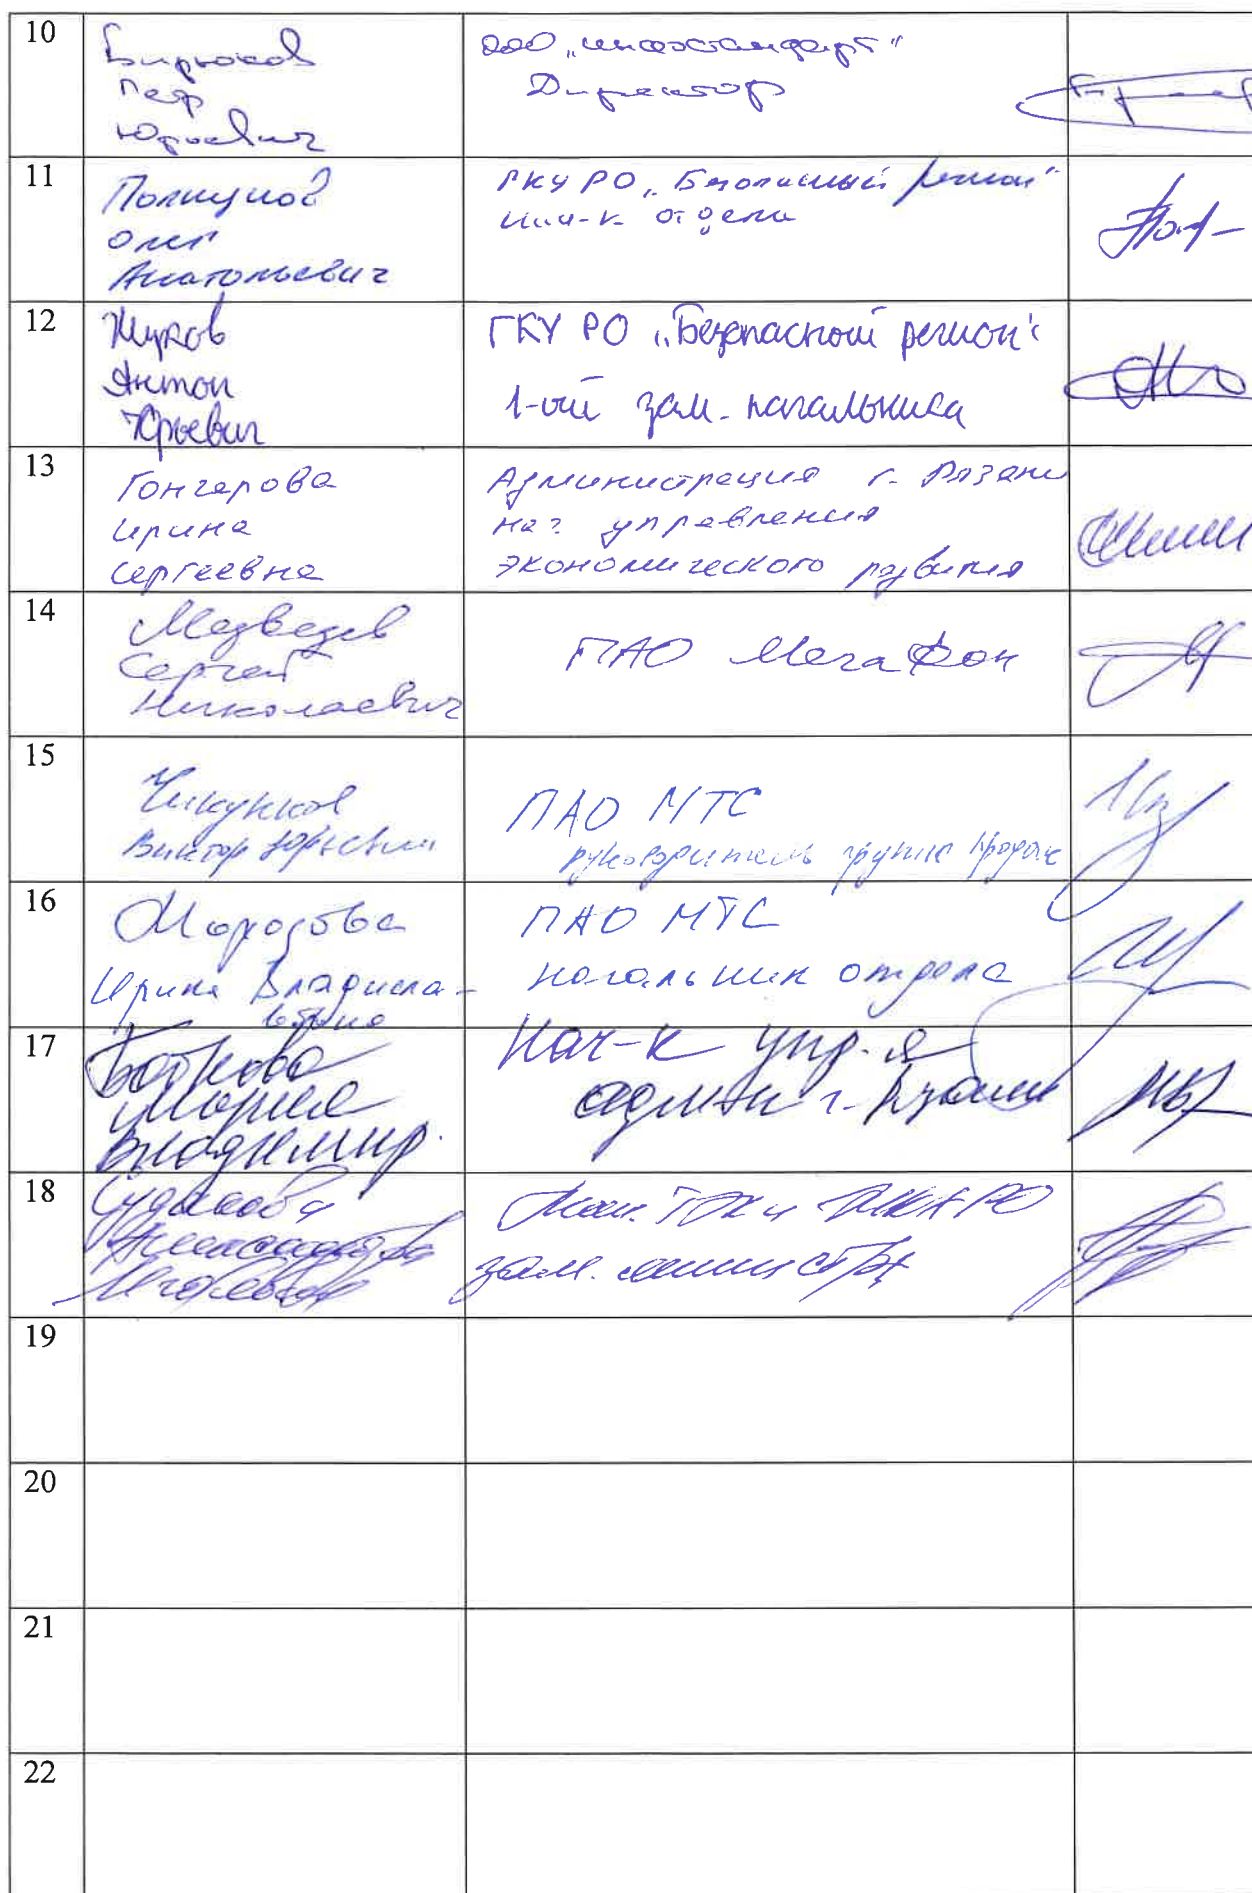 10
Бирюков
Петр
Юрьевич
ООО „Инфостандарт"
Директор
11
Полицнов
Олег
Анатольевич
ГКУ РО „Безопасный регион"
нач-к отдела
12
Жуков
Антон
Юрьевич
ГКУ РО „Безопасный регион"
1-ый зам. начальника
13
Гончарова
Ирина
Сергеевна
Администрация г. Рязани
нач управления
экономического развития
14
Медведев
Сергей
Николаевич
ПАО МегаФон
15
Чикунков
Виктор Юрьевич
ПАО МТС
руководитель группы продаж
16
Морозова
Ирина Владисла-
вовна
ПАО МТС
начальник отдела
17
Боткова
Мария
Владимир.
Нач-к упр-я
админ г. Рязани
18
Судакова
зам. министра
19
20
21
22